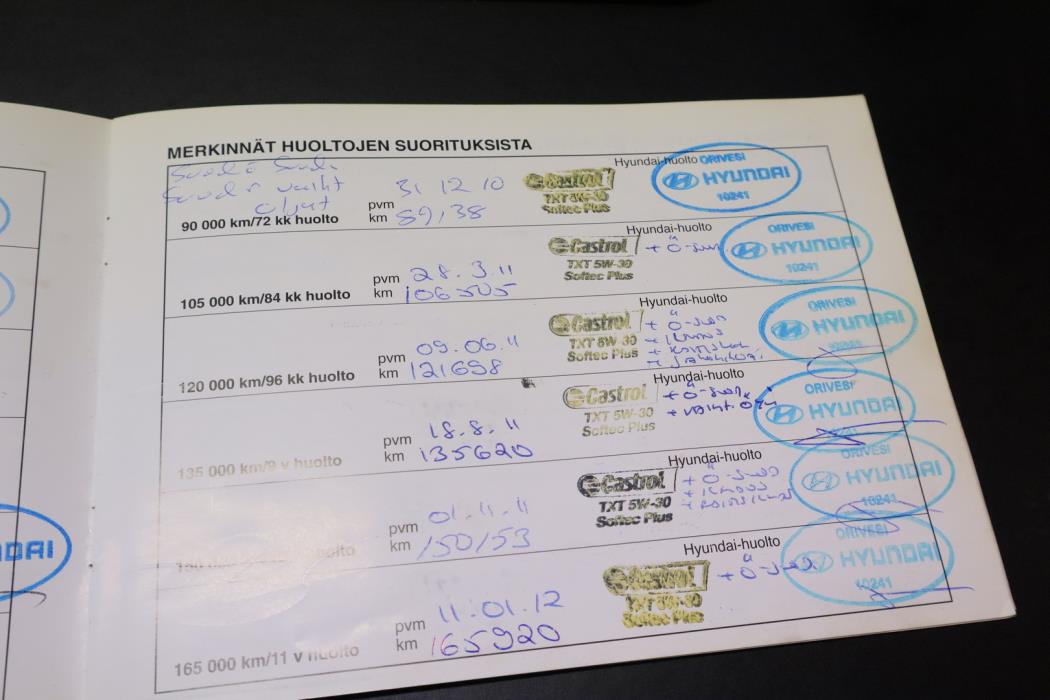 MERKINNÄT HUOLTOJEN SUORITUKSISTA
Hyundai-huolto
ORIVESI
HYUNDAI
10241
Castrol
TXT 5W-30
Softec Plus
pvm 31 12 10
km 89,38
90 000 km/72 kk huolto
Hyundai-huolto
ORIVESI
HYUNDAI
10241
Castrol
TXT 5W-30
Softec Plus
pvm 28.3.11
km 106505
105 000 km/84 kk huolto
Hyundai-huolto
ORIVESI
HYUNDAI
Castrol
TXT 5W-30
Softec Plus
pvm 09.06.11
km 121698
120 000 km/96 kk huolto
Hyundai-huolto
ORIVESI
HYUNDAI
Castrol
TXT 5W-30
Softec Plus
pvm 18.8.11
km 135620
135 000 km/9 v huolto
Hyundai-huolto
ORIVESI
HYUNDAI
10241
Castrol
TXT 5W-30
Softec Plus
pvm 01.11.11
km 150153
huolto
Hyundai-huolto
ORIVESI
HYUNDAI
10241
Castrol
TXT 5W-30
Softec Plus
pvm 11.01.12
km 165920
165 000 km/11 v huolto